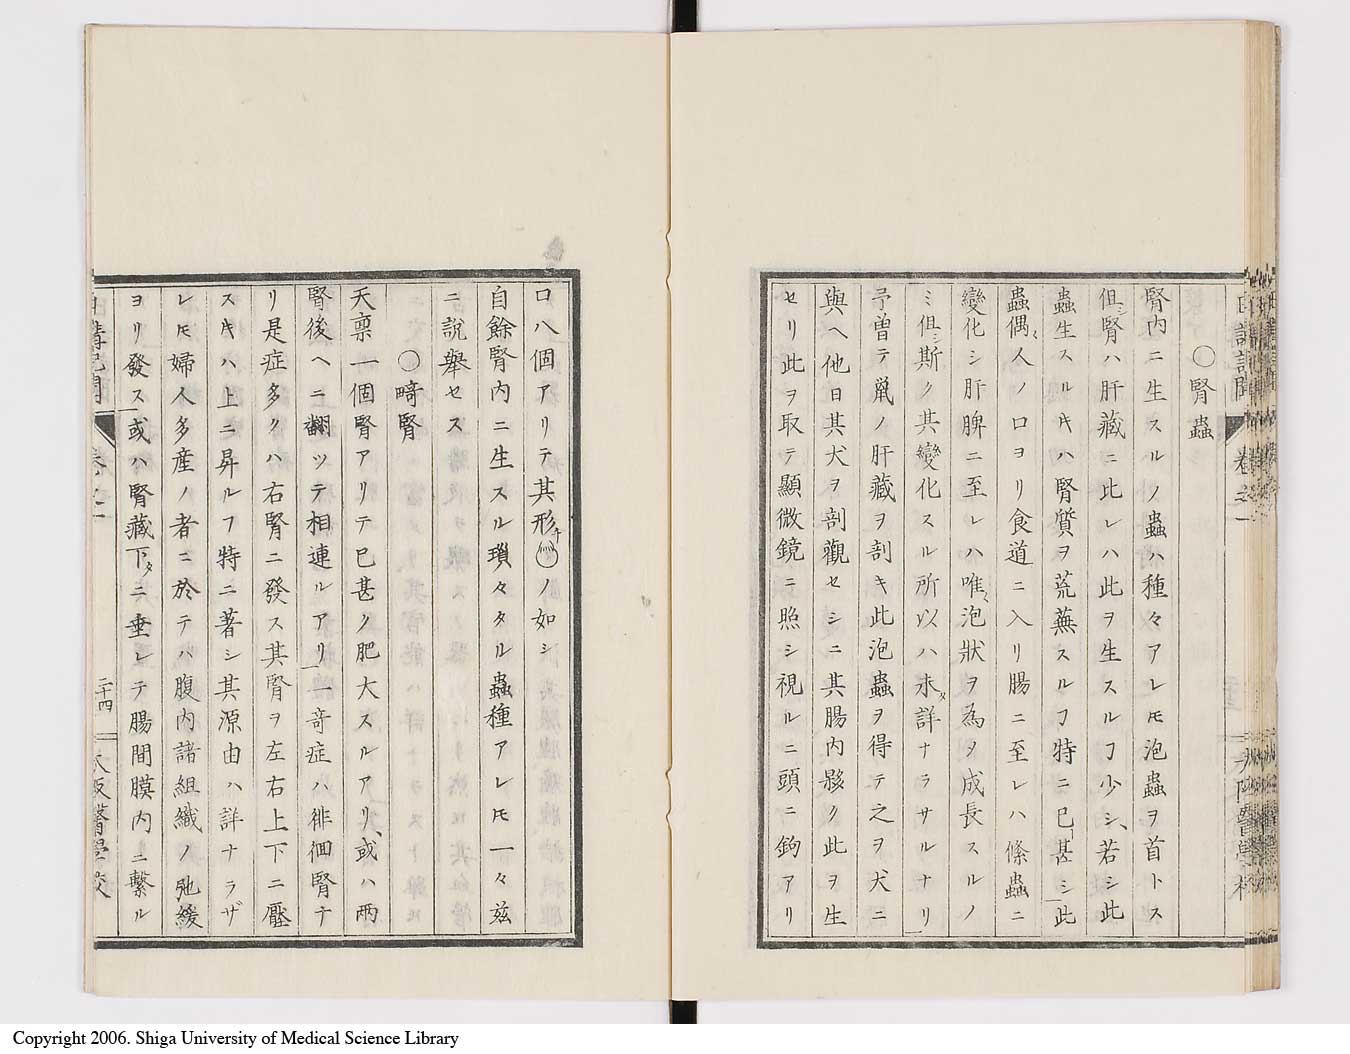 〇腎蟲
腎内ニ生スルノ蟲ハ種々アレ𪜈泡蟲ヲ首トス
但シ腎ハ肝藏ニ此レハ此ヲ生スルヿ少シ、若シ此
蟲生スル𪜈ハ腎質ヲ荒蕪スルヿ特ニ已甚シ此
蟲偶々人ノ口ヨリ食道ニ入リ腸ニ至レハ條蟲ニ
變化シ肝脾ニ至レハ唯、泡狀ヲ為ヲ成長スルノ
ミ但シ斯ク其變化スル所以ハ未タ詳ナラサルナリ
予曽テ鼠ノ肝藏ヲ剖キ此泡蟲ヲ得テ之ヲ犬ニ
與ヘ他日其犬ヲ剖觀セシニ其腸内夥ク此ヲ生
セリ此ヲ取テ顯微鏡ニ照シ視ルニ頭ニ鉤アリ
日講記聞 卷之一
口八個アリテ其形チノ如シ
自餘腎内ニ生スル瑣々タル蟲種アレ𪜈一々玆
ニ說擧セス
〇畸腎
天稟一個腎アリテ已甚ク肥大スルアリ、或ハ兩
腎後ヘニ翻ツテ相連ルアリ一竒症ハ徘徊腎テ
リ是症多クハ右腎ニ發ス其腎ヲ左右上下ニ壓
スキハ上ニ昇ルヿ特ニ著シ其源由ハ詳ナラザ
レ𪜈婦人多産ノ者ニ於テハ腹内諸組織ノ弛緩
ヨリ發ス或ハ腎藏下タニ垂レテ腸間膜内ニ繋ル
日講記聞 卷之一 二十四 大阪醫學校
Copyright 2006. Shiga University of Medical Science Library